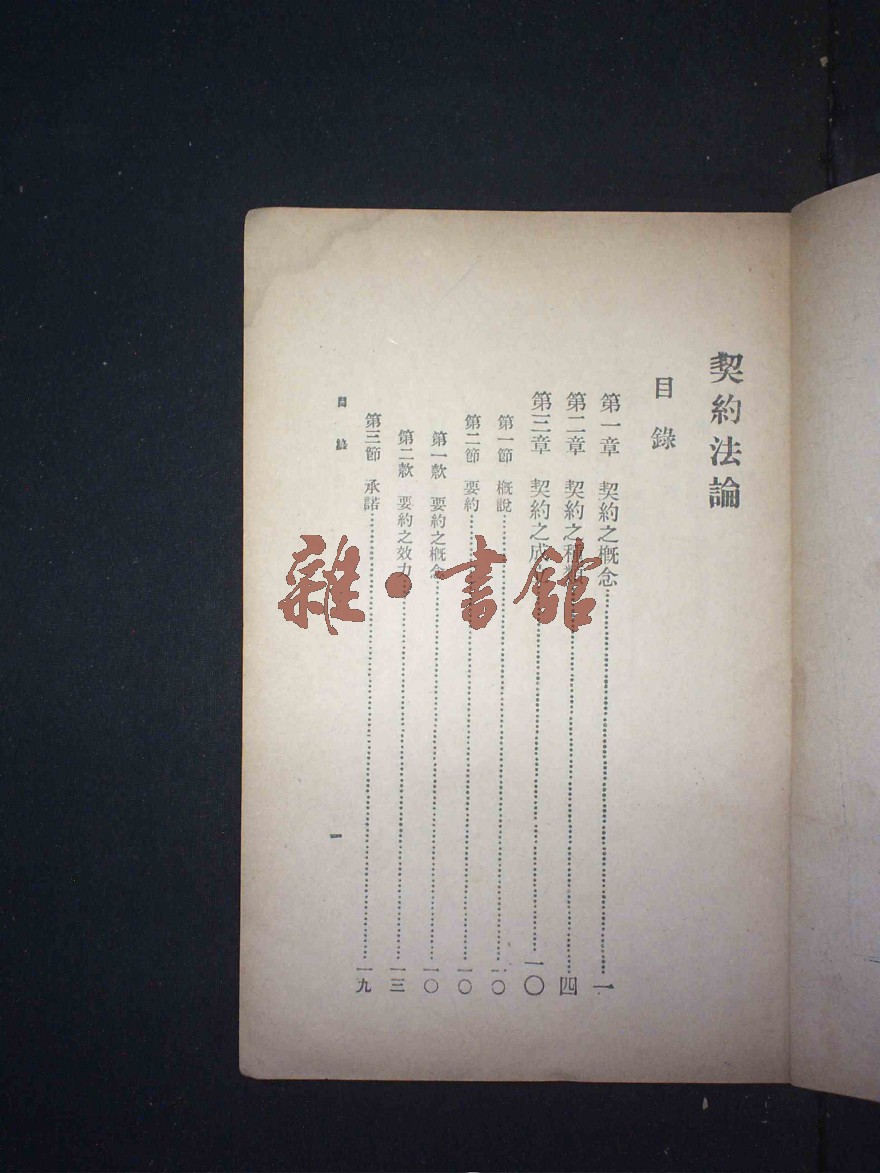 契約法論
目錄
第一章 契約之概念…………一
第二章 契約之種類…………四
第三章 契約之成立…………一〇
第一節 概說…………一〇
第二節 要約…………一〇
第一款 要約之概念…………一〇
第二款 要約之效力…………一三
第三節 承諾…………一九
目錄
一
雜·書館